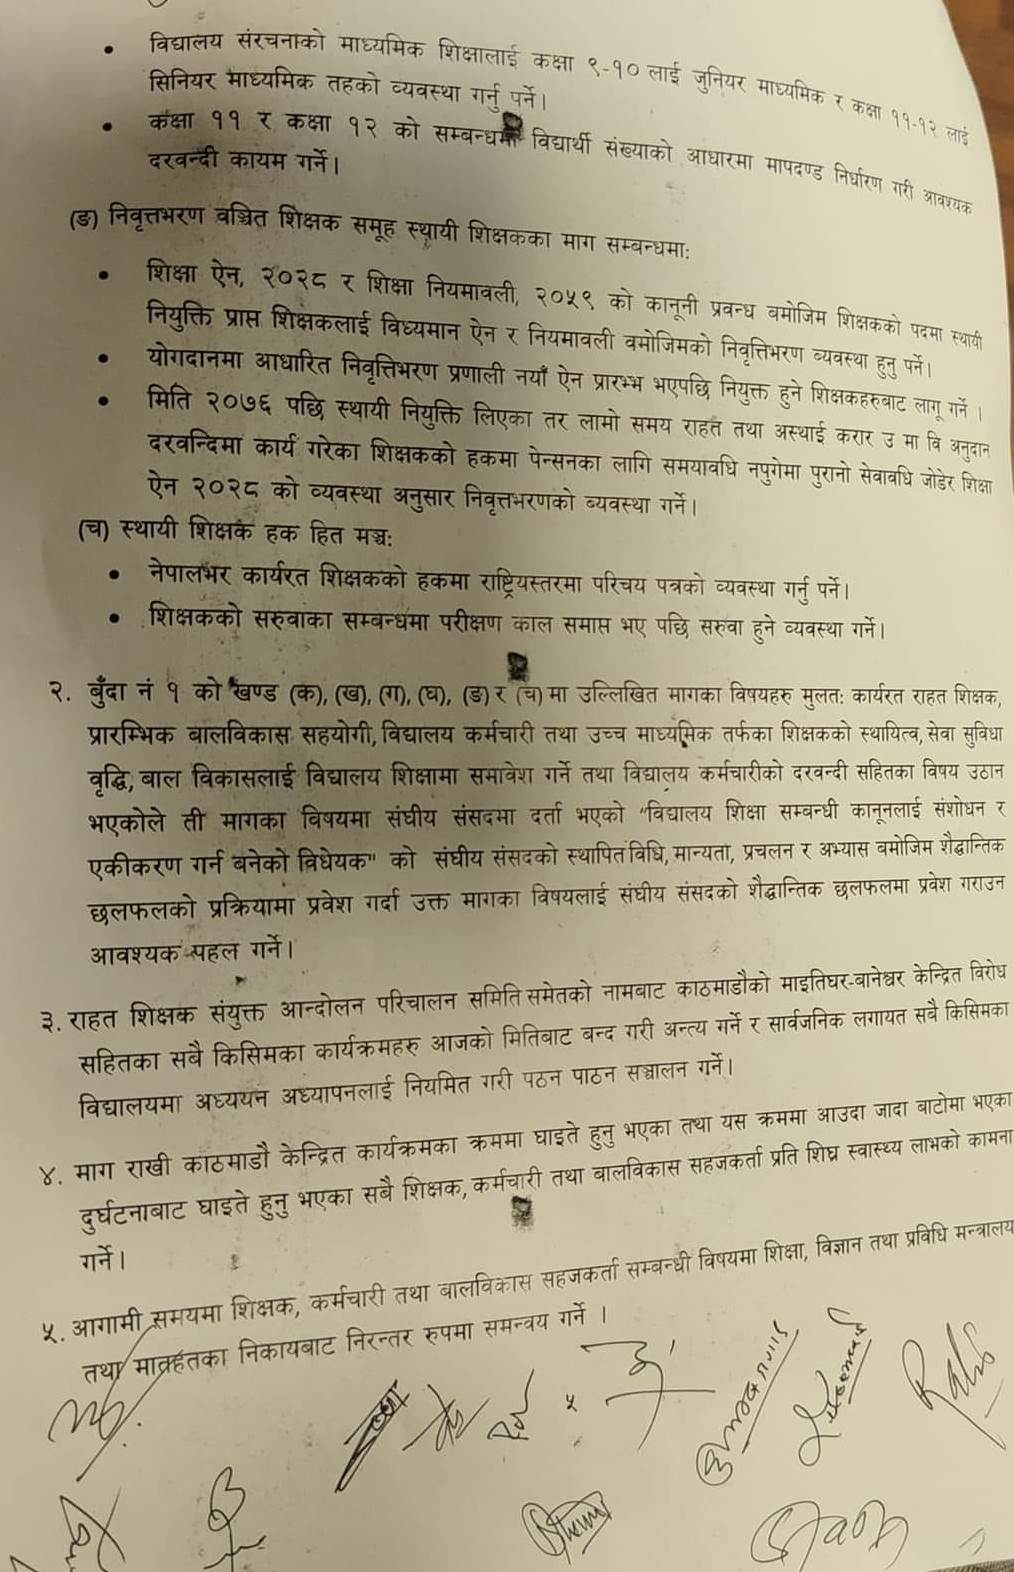 • विद्यालय संरचनाको माध्यमिक शिक्षालाई कक्षा ९-१० लाई जुनियर माध्यमिक र कक्षा ११-१२ लाई
सिनियर माध्यमिक तहको व्यवस्था गर्नु पर्ने।
• कक्षा ११ र कक्षा १२ को सम्बन्धमा विद्यार्थी संख्याको आधारमा मापदण्ड निर्धारण गरी आवश्यक
दरवन्दी कायम गर्ने।
(ङ) निवृत्तभरण वञ्चित शिक्षक समूह स्थायी शिक्षकका माग सम्बन्धमा:
• शिक्षा ऐन, २०२८ र शिक्षा नियमावली, २०५९ को कानूनी प्रवन्ध बमोजिम शिक्षकको पदमा स्थायी
नियुक्ति प्राप्त शिक्षकलाई विध्यमान ऐन र नियमावली वमोजिमको निवृत्तिभरण व्यवस्था हुनु पर्ने।
• योगदानमा आधारित निवृत्तिभरण प्रणाली नयाँ ऐन प्रारम्भ भएपछि नियुक्त हुने शिक्षकहरुबाट लागू गर्ने ।
• मिति २०७६ पछि स्थायी नियुक्ति लिएका तर लामो समय राहत तथा अस्थाई करार उ मा वि अनुदान
दरवन्दिमा कार्य गरेका शिक्षकको हकमा पेन्सनका लागि समयावधि नपुगेमा पुरानो सेवावधि जोडेर शिक्षा
ऐन २०२८ को व्यवस्था अनुसार निवृत्तभरणको व्यवस्था गर्ने।
(च) स्थायी शिक्षक हक हित मञ्च:
• नेपालभर कार्यरत शिक्षकको हकमा राष्ट्रियस्तरमा परिचय पत्रको व्यवस्था गर्नु पर्ने।
• शिक्षकको सरुवाका सम्बन्धमा परीक्षण काल समाप्त भए पछि सरुवा हुने व्यवस्था गर्ने।
२. बुँदा नं १ को खण्ड (क), (ख), (ग), (घ), (ङ) र (च) मा उल्लिखित मागका विषयहरु मुलत: कार्यरत राहत शिक्षक,
प्रारम्भिक बालविकास सहयोगी, विद्यालय कर्मचारी तथा उच्च माध्यमिक तर्फका शिक्षकको स्थायित्व, सेवा सुविधा
वृद्धि, बाल विकासलाई विद्यालय शिक्षामा समावेश गर्ने तथा विद्यालय कर्मचारीको दरवन्दी सहितका विषय उठान
भएकोले ती मागका विषयमा संघीय संसदमा दर्ता भएको "विद्यालय शिक्षा सम्बन्धी कानूनलाई संशोधन र
एकीकरण गर्न बनेको विधेयक" को संघीय संसदको स्थापित विधि, मान्यता, प्रचलन र अभ्यास बमोजिम शैद्धान्तिक
छलफलको प्रक्रियामा प्रवेश गर्दा उक्त मागका विषयलाई संघीय संसदको शैद्धान्तिक छलफलमा प्रवेश गराउन
आवश्यक पहल गर्ने।
३. राहत शिक्षक संयुक्त आन्दोलन परिचालन समिति समेतको नामबाट काठमाडौको माइतिघर-बानेश्वर केन्द्रित विरोध
सहितका सबै किसिमका कार्यक्रमहरु आजको मितिबाट बन्द गरी अन्त्य गर्ने र सार्वजनिक लगायत सबै किसिमका
विद्यालयमा अध्ययन अध्यापनलाई नियमित गरी पठन पाठन सञ्चालन गर्ने।
४. माग राखी काठमाडौ केन्द्रित कार्यक्रमका क्रममा घाइते हुनु भएका तथा यस क्रममा आउदा जादा बाटोमा भएका
दुर्घटनाबाट घाइते हुनु भएका सबै शिक्षक, कर्मचारी तथा बालविकास सहजकर्ता प्रति शिघ्र स्वास्थ्य लाभको कामना
गर्ने।
५. आगामी समयमा शिक्षक, कर्मचारी तथा बालविकास सहजकर्ता सम्बन्धी विषयमा शिक्षा, विज्ञान तथा प्रविधि मन्त्रालय
तथा मातहतका निकायबाट निरन्तर रुपमा समन्वय गर्ने ।